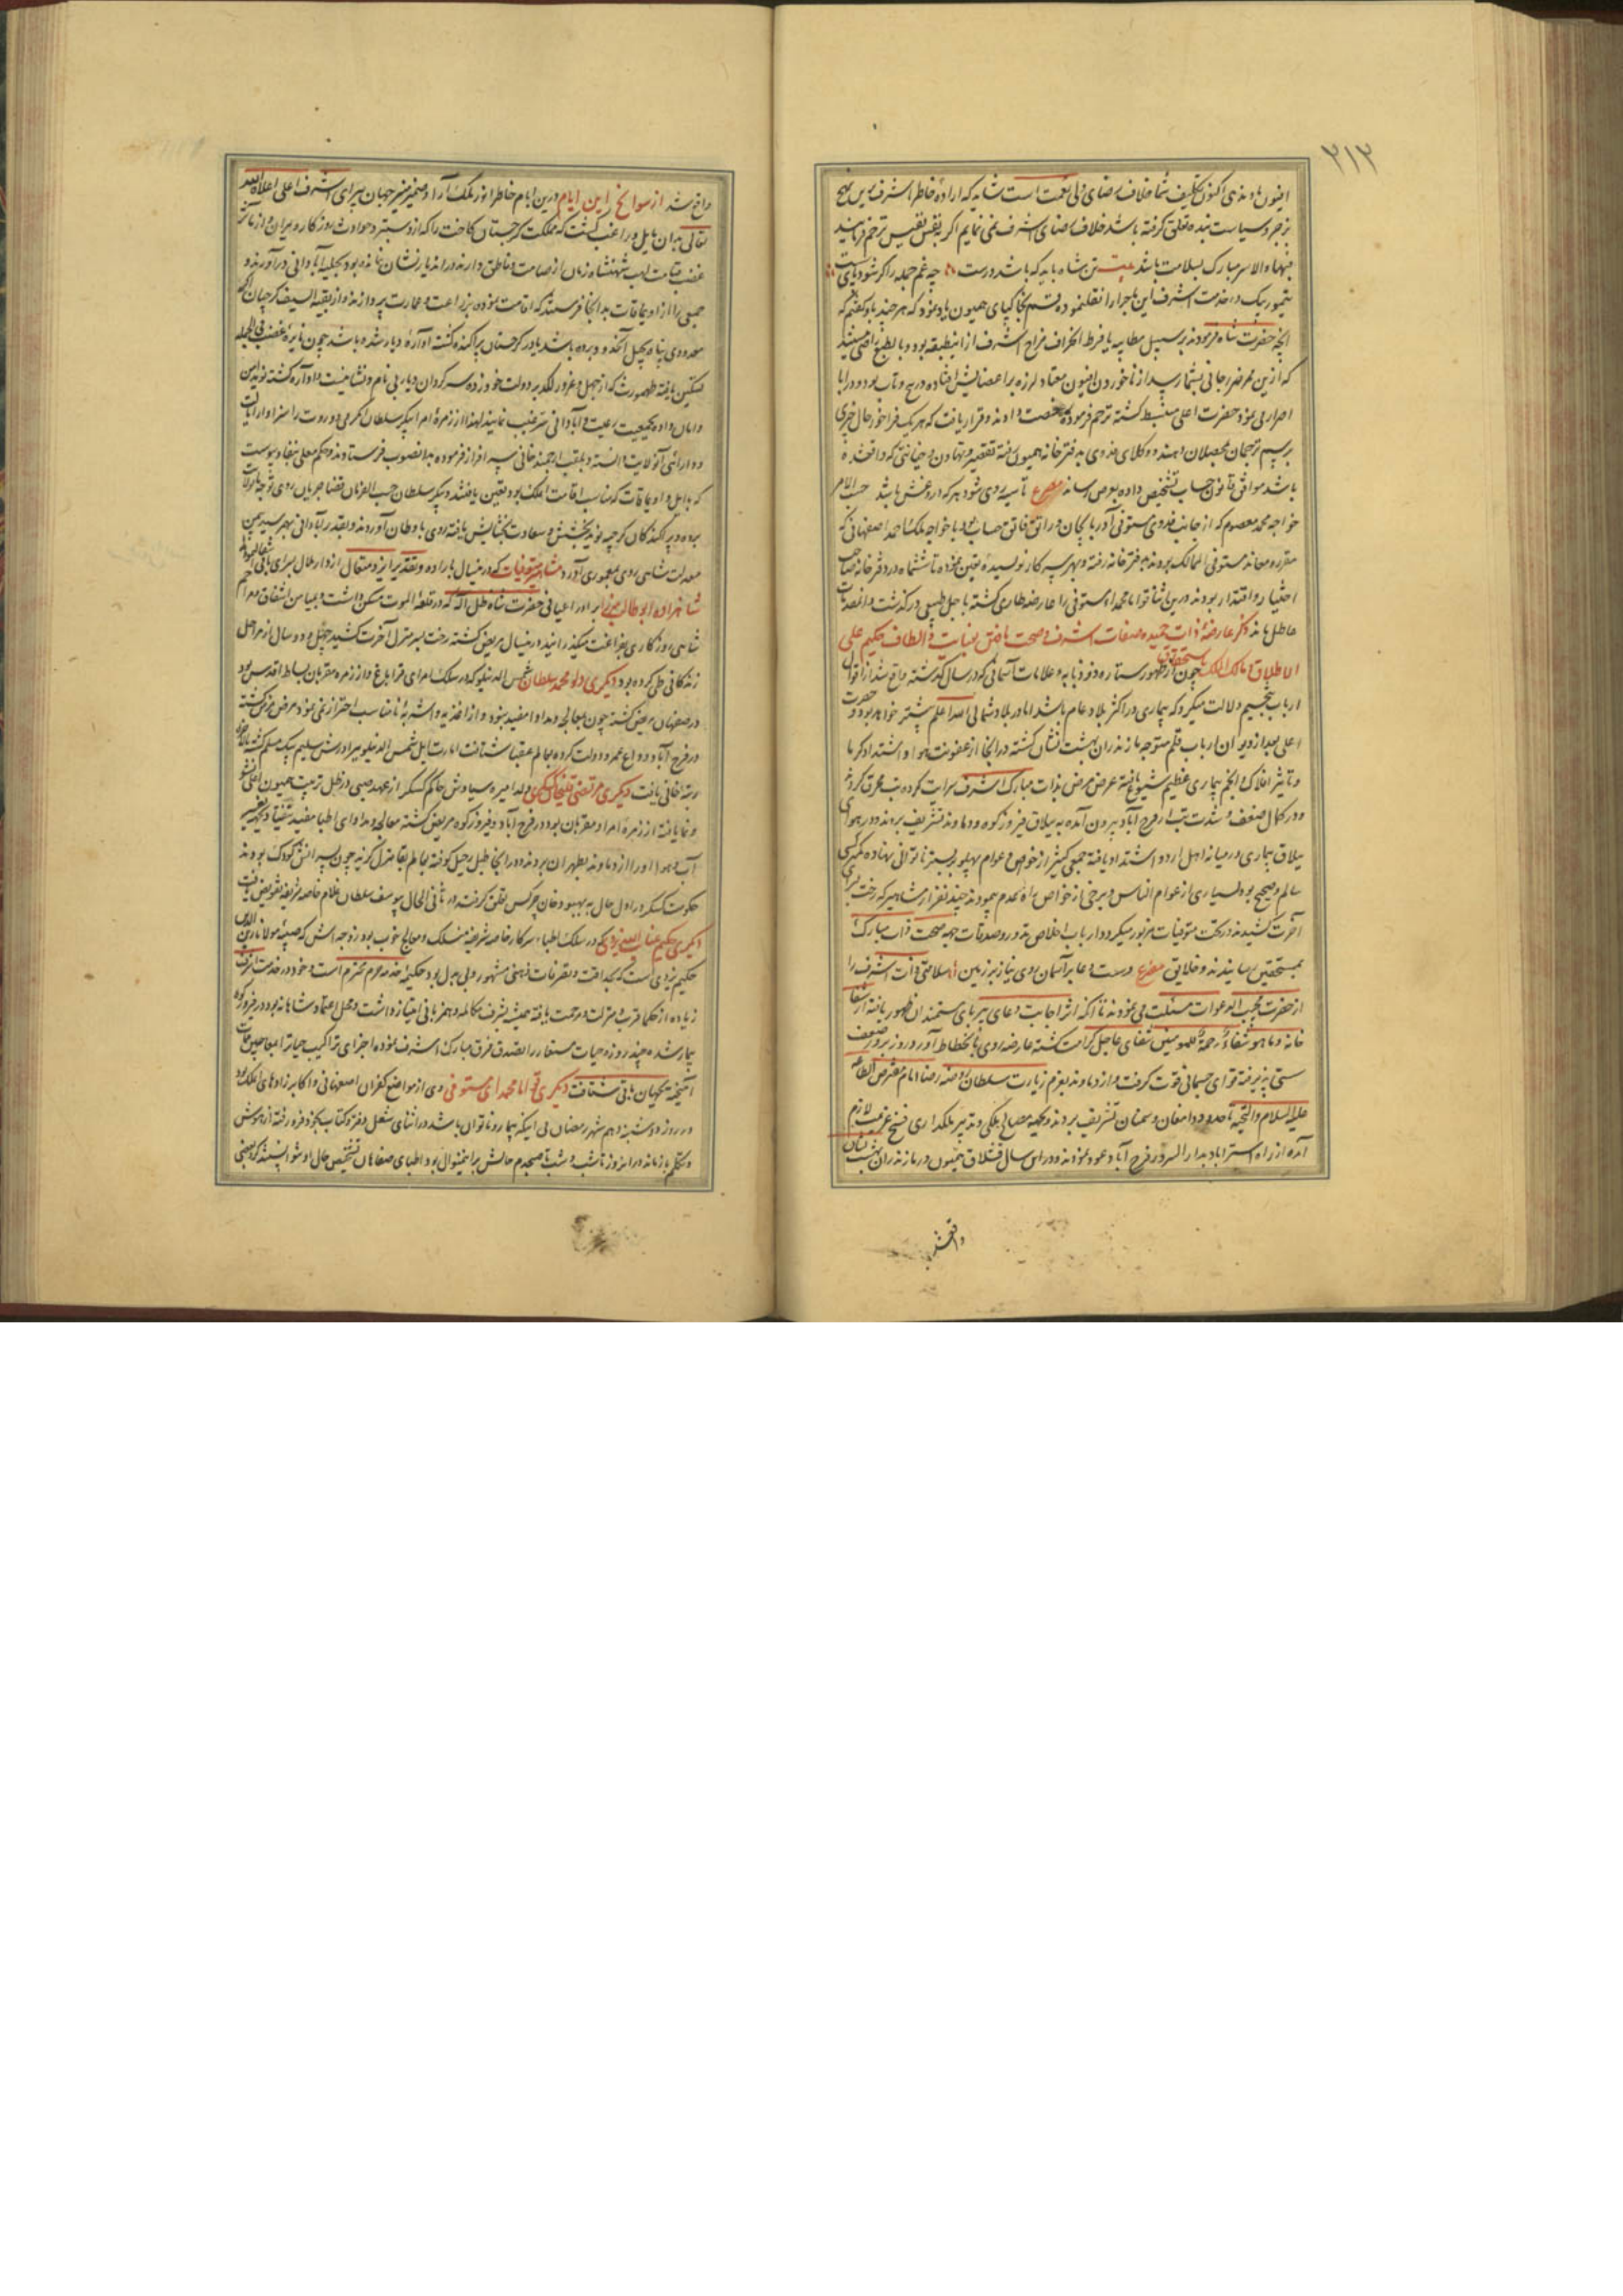 ٣١٣
افیون داده‌ای اکنون تکلیف شما خلاف رضای ولی نعمت است شاید که اراده خاطر اشرف بدین نهج
بزجر و سیاست بنده تعلق گرفته باشد خلاف رضای اشرف نمی نمایم اگر بنفس نفیس ترحم فرمایند
فبها والا سر مبارک بسلامت باشد بیت تن شاه باید که باشد درست چه غم جمله را گر شود پای سست
تیمور بیک در خدمت اشرف این ماجرا را نقل نموده قسم بخاکپای همیون یاد نمود که هر چند باو گفتم که
آنچه حضرت شاه فرمودند بر سبیل مطایبه یا فرط انحراف مزاج اشرف از این طبقه بود و بالطبع راضی نیستند
که ازین ممر ضرر جانی بشما رسد از ناخوردن افیون معتاد لرزه بر اعضایش افتاده در پیچ و تاب بود و در ابا
اصرار می نمود حضرت اعلی منبسط گشته ترحم فرموده رخصت دادند و قرار یافت که هر یک فراخور حال چیزی
برسم ترجمان بمحصلان دهند و وکلای فدوی بدفترخانه همیون رفته تقصیر و تهاون و خیانتی که واقع شده
باشد موافق قانون حساب تشخیص داده بعرض رسانند مصرع تا سیه روی شود هر که در او غش باشد حسب الامر
خواجه محمد معصوم که از جانب فدوی مستوفی آذربایجان و راتق و فاتق حساب بود با خواجه ملک احمد اصفهانی که
مقرره معاند مستوفی الممالک بودند بدفترخانه رفته و بهر سرکار نویسنده تعیین نموده تا ششماه در دفترخانه صاحب
اختیار و اقتدار بودند درین اثنا قواما محمدا مستوفی را عارضه طاری گشته باجل طبیعی درگذشت و آن قضایا
عاطل ماند ذکر عارضه ذات حمیده صفات اشرف و صحت یافتن بعنایت و الطاف حکیم علی
الاطلاق و مالک الملک باستحقاق چون از ظهور ستاره ذوذوابه و علامات آسمانی که در سال گذشته واقع شد از اقوال
ارباب تنجیم دلالت میکرد که بیماری در اکثر بلاد عام باشد اما در بلاد شمالی الله اعلم بیشتر خواهد بود و حضرت
اعلی بعد از دیوان ارباب قلم متوجه مازندران بهشت نشان گشته در آنجا از عفونت هوا و اشتداد گرما
و تاثیر افلاک و انجم بیماری عظیم شیوع یافته عرض مرض بذات مبارک اشرف سرایت کرده تب محرق کردند
و در کمال ضعف و شدت تب از فرح آباد بیرون آمده به ییلاق فیروزکوه و دماوند تشریف بردند و در هوای
ییلاق بیماری در میانه اهل اردو اشتداد یافته جمعی کثیر از خواص و عوام پهلو بر بستر ناتوانی نهاده کم کسی
سالم و صحیح بود بسیاری از عوام الناس و برخی از خواص راه عدم پیمودند چند نفر از مشاهیر که رخت بسرای
آخرت کشیدند در تحت متوفیات مزبور میگردد ارباب اخلاص نذور و صدقات جهة صحت ذات مبارک
بمستحقین رسانیدند و خلایق مصرع دست دعا بر آسمان روی نیاز بر زمین سلامتی ذات اشرف را
از حضرت مجیب الدعوات مسئلت می نمودند تا آنکه اثر اجابت دعای بی ریای مستمندان ظهور یافته از شفا
خانه و ما هو شفاء و رحمة للمومنین شفای عاجل کرامت گشته عارضه روی بانحطاط آورد و روز بروز ضعف
سستی پذیرفته قوای جسمانی قوت گرفت و از دماوند بعزم زیارت سلطان روضه رضا امام مفترض الطاعه
علیه السلام والتحیه تا حدود دامغان و سمنان تشریف بردند و بجهة مصالح ملکی و تدبیر ملکداری فسخ عزیمت لازم
آمده از راه استراباد بدار السرور فرح آباد عود نمودند و در این سال قشلاق همیون در مازندران بهشت نشان
واقع شد
واقع شد از سوانح این ایام درین ایام خاطر انور ملک آرا و ضمیر منیر جهان پیرای اشرف اعلی اعلاه الله
تعالی بدان مایل و راغب گشت که مملکت گرجستان کاخت را که از دستبرد حوادث روزگار ویران و از تاثیر
غضب قیامت لهب شهنشاه زمان از صامت و ناطق دارنده در آن دیار نشان نمانده بود بحلیه آبادانی درآورند و
جمعی را از اویماقات بدانجا فرستند که اقامت نموده بزراعت و عمارت پردازند و از بقیة السیف گرجیان اگر
معدودی پناه بجبل آن حدود برده باشند یا در گرجستان پراکنده گشته آواره دیار شده باشند چون نایره غضب فی الجمله
تسکین یافته طهمورث که از جهل و غرور لگد بر دولت خود زده سرگردان دیار بی نام و نشانیست و آواره گشته نوید امن
و امان داده بجمعیت رعیت و آبادانی ترغیب نمایند لهذا از زمره امرا پیکر سلطان ایکرمی دو روت را سزاوار ایالت
و دارائی آن ولایت دانسته و بلقب ارجمند خانی سرافراز فرموده بدانصوب فرستادند و حکم معلی بنفاذ پیوست
که با ایل و اویماقات که مناسب اقامت آن ملک بود تعیین یافتند و پیکر سلطان حسب الفرمان قضا جریان روی توجه بدان ولایت
برده و پراکندگان گرجیه نوید بخشش و سعادت بخشایش یافته روی باوطان آوردند و بقدر آبادانی بهمرسید بیمن
معدلت شاهی روی بمعموری آورد مشاهیر متوفیات که درینسال باراده و تقدیر ایزد متعال از دار ملال بسرای باقی انتقال نمودند
شاهزاده ابوطالب میرزا برادر اعیانی حضرت شاه ظل الله که در قلعه الموت مسکن داشت و بمیامن اشفاق و مراحم
شاهی روزگاری بفراغت میگذرانید درینسال مریض گشته رخت بسر منزل آخرت کشید چهل و دو سال از مراحل
زندگانی طی کرده بود دیگری دلو محمد سلطان شمس الدینلو که در سلک امرای قراباغ و از زمره مقربان بساط اقدس بود
در صفهان مریض گشته چون معالجه و مداوا مفید نبود و از اغذیه و اشربه نامناسب احتراز نمی نمود مرض مزمن گشته
در فرح آباد وداع عمر و دولت کرده بعالم عقبا شتافت امارت ایل شمس الدینلو ببرادرش سلیم بیک مسلم گشته
رتبه خانی یافت دیگری مرتضی قلیخان گسکری ولد امیره سیاوش حاکم گسکر از عهد صبی در ظل تربیت همیون اعلی نشو
و نما یافته از زمره امرا و مقربان بود در فرح آباد و فیروزکوه مریض گشته معالجه و مداوای اطبا مفید نیفتاد بجهة تغییر
آب و هوا او را از دماوند بطهران بردند و در آنجا طبل رحیل کوفته بعالم بقا منزل گزید چون پسرانش کودک بودند
حکومت گسکر در اول حال به بهبود خان چرکس تعلق گرفت و در ثانی الحال بیوسف سلطان غلام خاصه شریفه تفویض یافت
دیگری حکیم عنایت الله یزدی که در سلک اطباء سرکار خاصه شریفه منسلک و معالج خوب بود زوجه اش که صبیه مولانا زین الدین
حکیم یزدی است که بحذاقت و تصرفات ذهنی مشهور و بی بدل بود حکیمه خدمه حرم محترم است و خود در خدمت اشرف
زیاده از حکما قرب و منزلت و مرحمت یافته همیشه بشرف مکالمه و همزبانی امتیاز داشت و محل اعتماد شاهانه بود در فیروزکوه
بیمار شده چند روزه حیات مستعار را تصدق فرق مبارک اشرف نموده اجزای تراکیب حیات را با معاجین ممات
آمیخته بجهان باقی شتافت دیگری قواما محمدا مستوفی وی از مواضع کفران اصفهانی و اکابرزادهای آن ملک بود
در روز دوشنبه دهم شهر رمضان بی آنکه بیمار و ناتوان باشد در اثنای شغل دفتر و کتاب بخود فرو رفته از هوش
و تکلم بازمانده در آن روز تا شب و شب تا صبحدم حالش برینمنوال بود اطبای صفاهان تشخیص حال او نتوانستند کرد بعضی